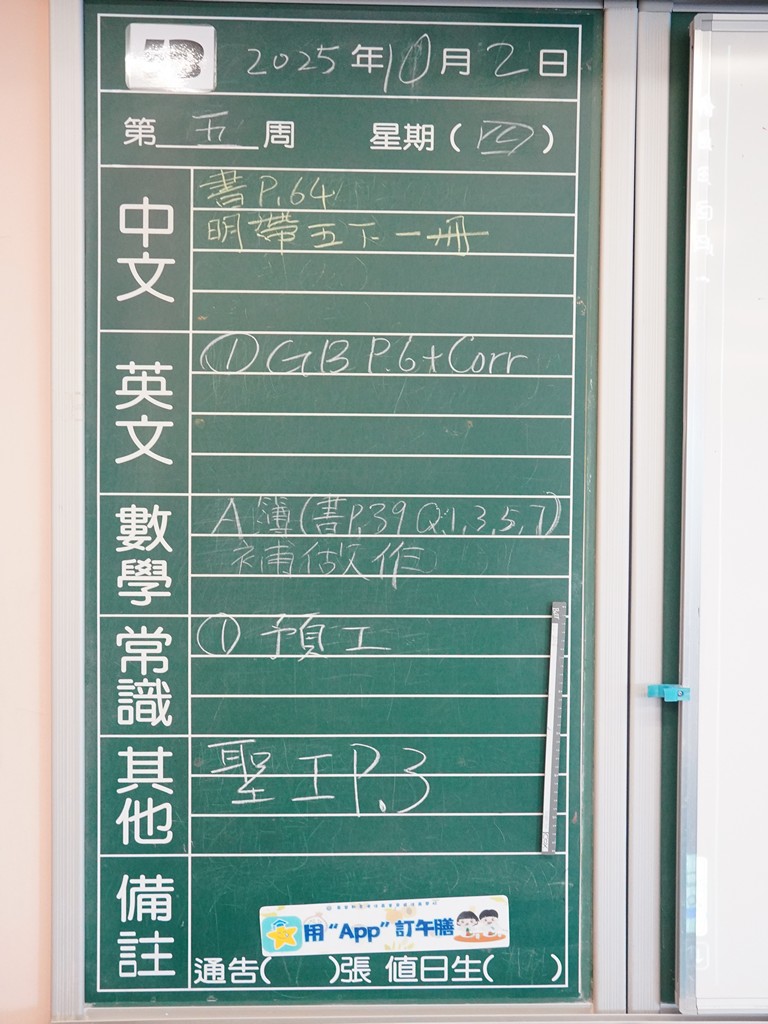 5B 2025年10月2日
第五周 星期(四)
中文
書P.64
明帶五下一冊
英文
①GB P.6+Corr
數學
A簿(書P.39 Q.1,3,5,7)
補做作
常識
①預工
其他
聖工P.3
備註
用“App”訂午膳
通告( )張 值日生( )